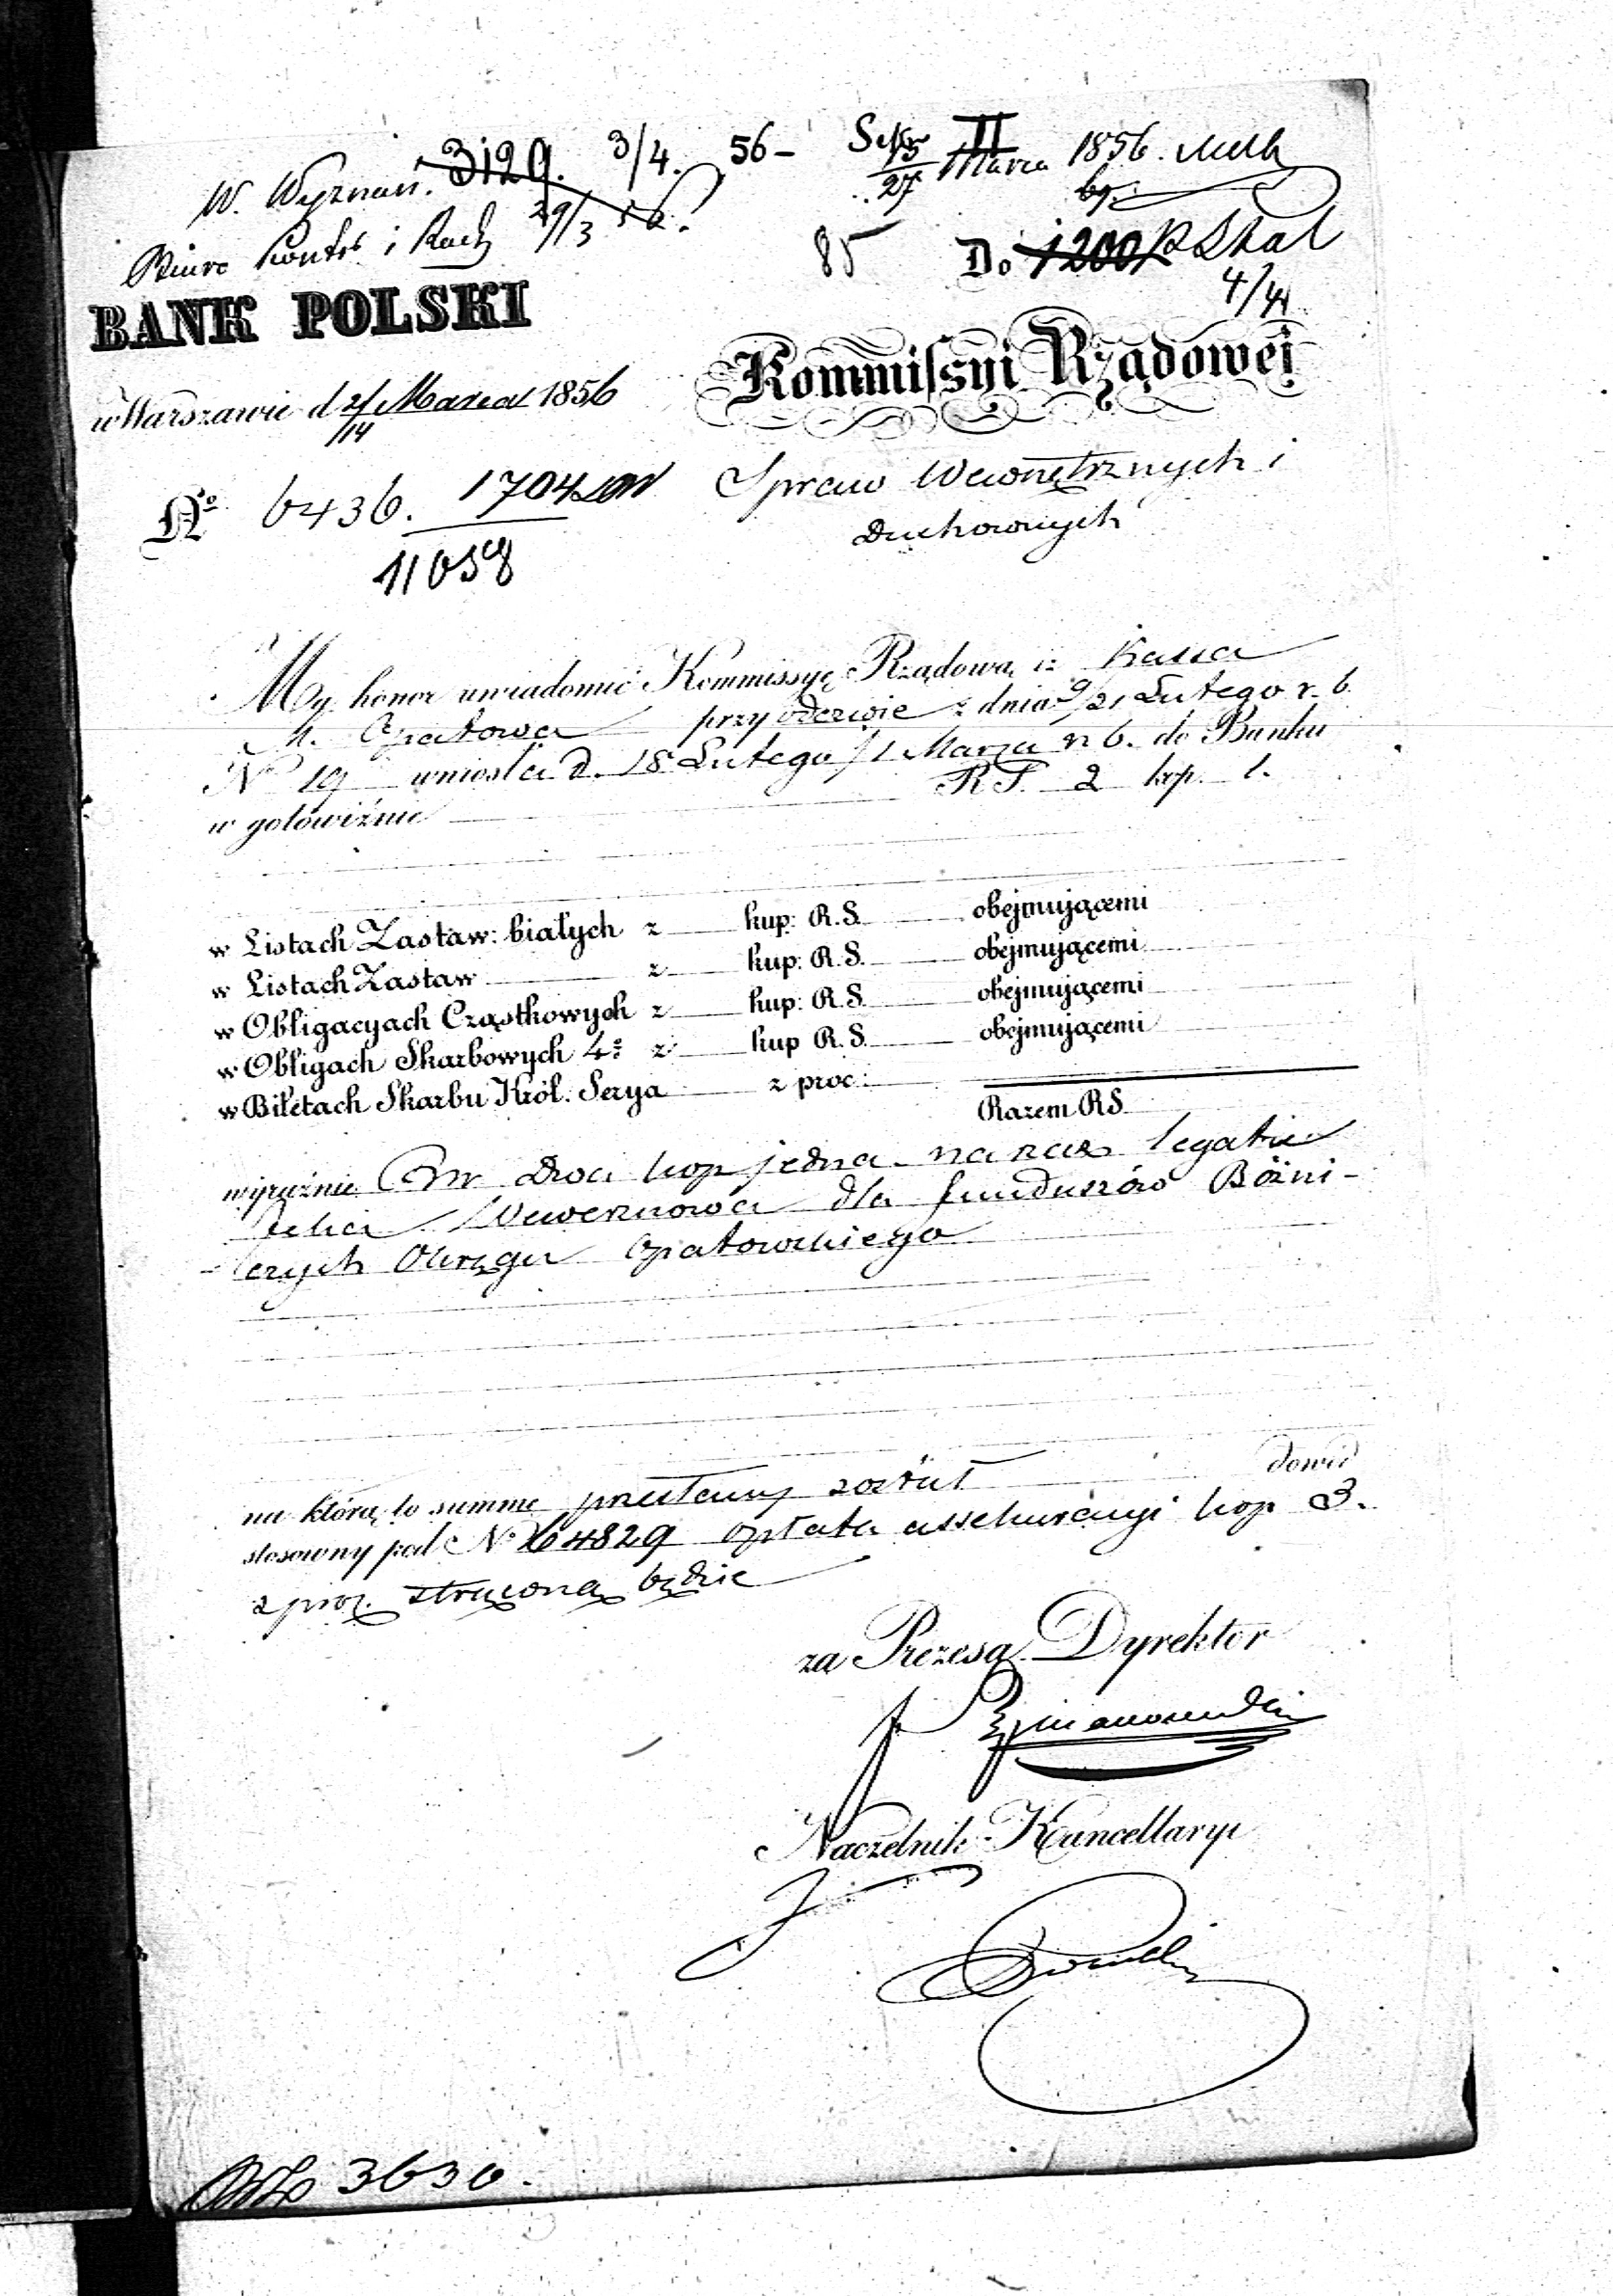 3129. 3/4. 56 -
II
15/27 Marca 1856.
W. Wyznań. 29/3 56.
Biuro Kontr i Rach
85
Do
4/4
BANK POLSKI
Kommissyi Rządowej
w Warszawie d 2/14 Marca 1856
Spraw Wewnętrznych i
Duchownych
No 6436. 1704
11058
Ma honor uwiadomić Kommissyę Rządową iż Kassa
M. Opatowa przy odezwie z dnia 9/21 Lutego r. b.
No 19 wniosła d. 18 Lutego / 1 Marca r. b. do Banku
w gotowiźnie R S. 2 kop. 1.
w Listach Zastaw: białych z kup: R.S. obejmującemi
w Listach Zastaw z kup: R.S. obejmującemi
w Obligacyach Cząstkowych z kup: R.S. obejmującemi
w Obligach Skarbowych 4% z kup R.S. obejmującemi
w Biletach Skarbu Król: Serya z proc:
Razem RS
wyraźnie dwa kop jedna na rzecz legatu
dla funduszów Bóżni-
-czych Okręgu Opatowskiego
na którą to summę przesłany został dowód
stosowny pod No 64829 opłata assekuracyi kop 3.
z proc. strąconą będzie
za Prezesa Dyrektor
Naczelnik Kancellaryi
3630.